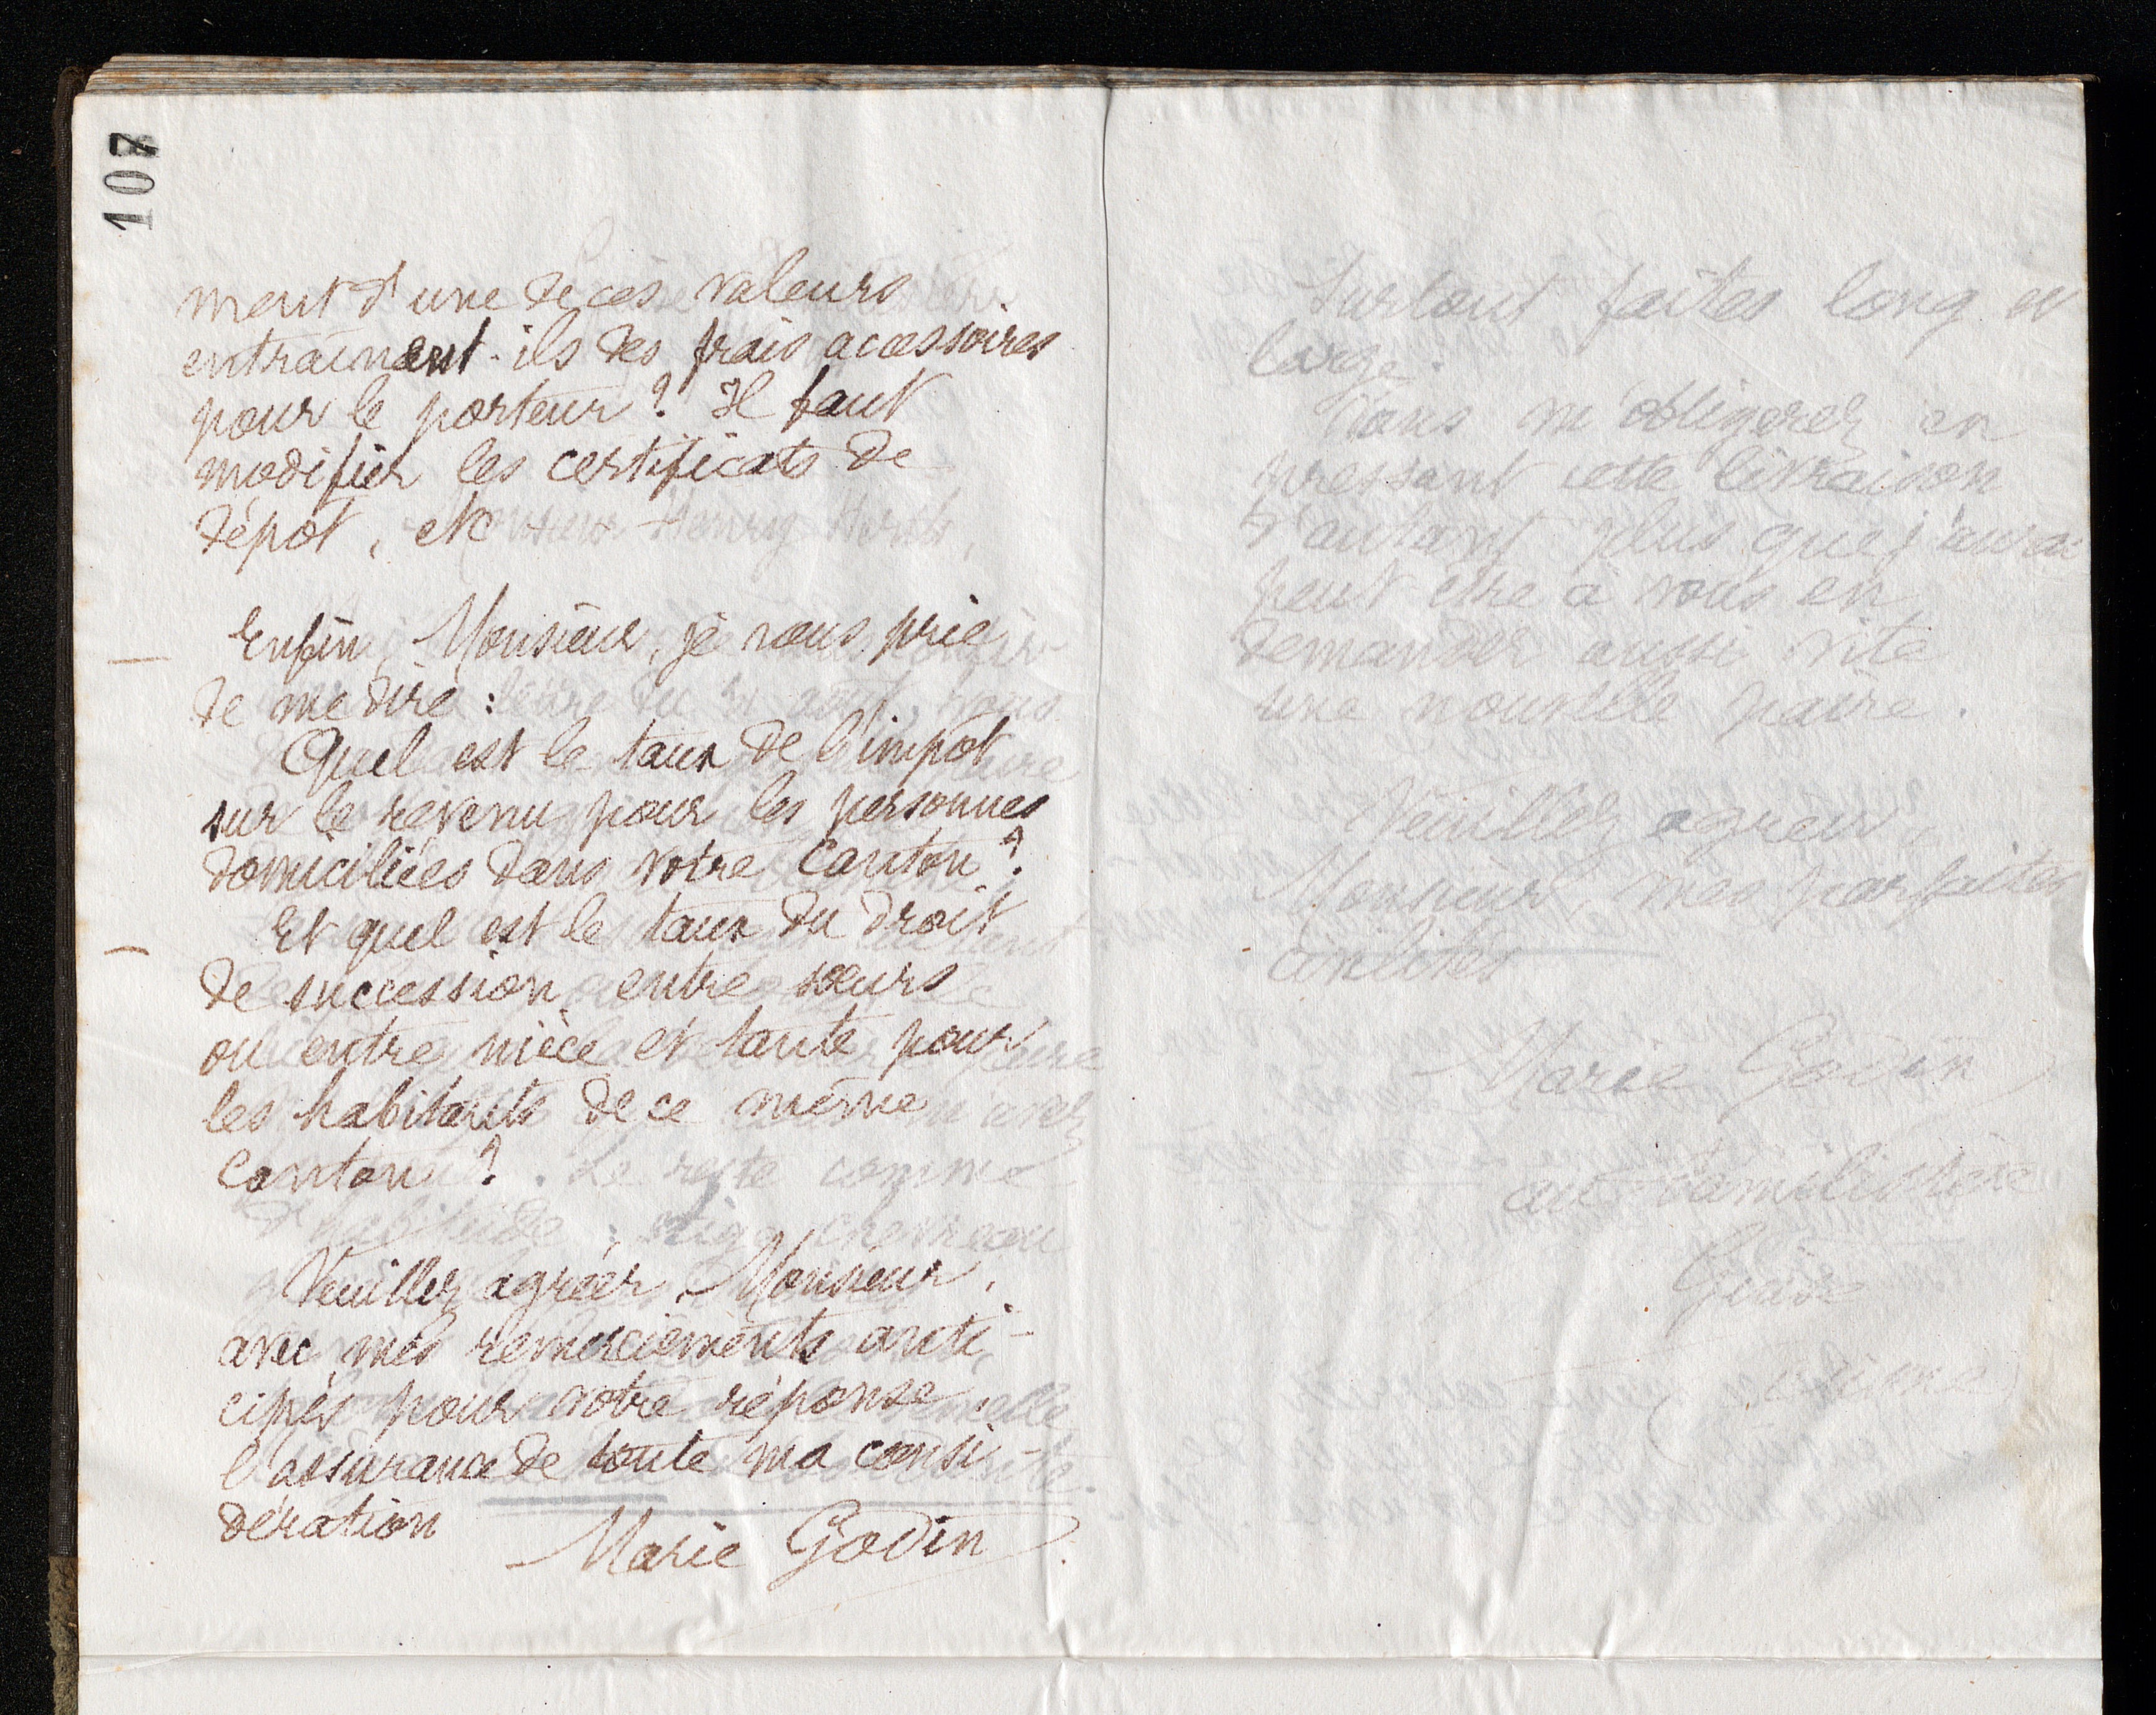 107
ment d'une de ces valeurs
entraînent-ils des frais accessoires
pour le porteur ? Il faut
modifier les certificats de
dépôt, etc
Enfin, Monsieur, je vous prie
de me dire :
Quel est le taux de l'impôt
sur le revenu pour les personnes
domiciliées dans votre canton ?
Et quel est le taux du droit
de succession entre sœurs
ou entre nièce et tante pour
les habitants de ce même
canton ?
Veuillez agréer, Monsieur,
avec mes remerciements anti-
cipés pour votre réponse,
l'assurance de toute ma consi-
dération
Marie Godin
Surtout faites long et
large.
Vous m'obligerez en
pressant cette livraison
d'autant plus que j'aurai
peut être à vous en
demander aussi vite
une nouvelle paire.
Veuillez agréer,
Monsieur, mes parfaites
civilités
Marie Godin
au Familistère
Guise
Aisne